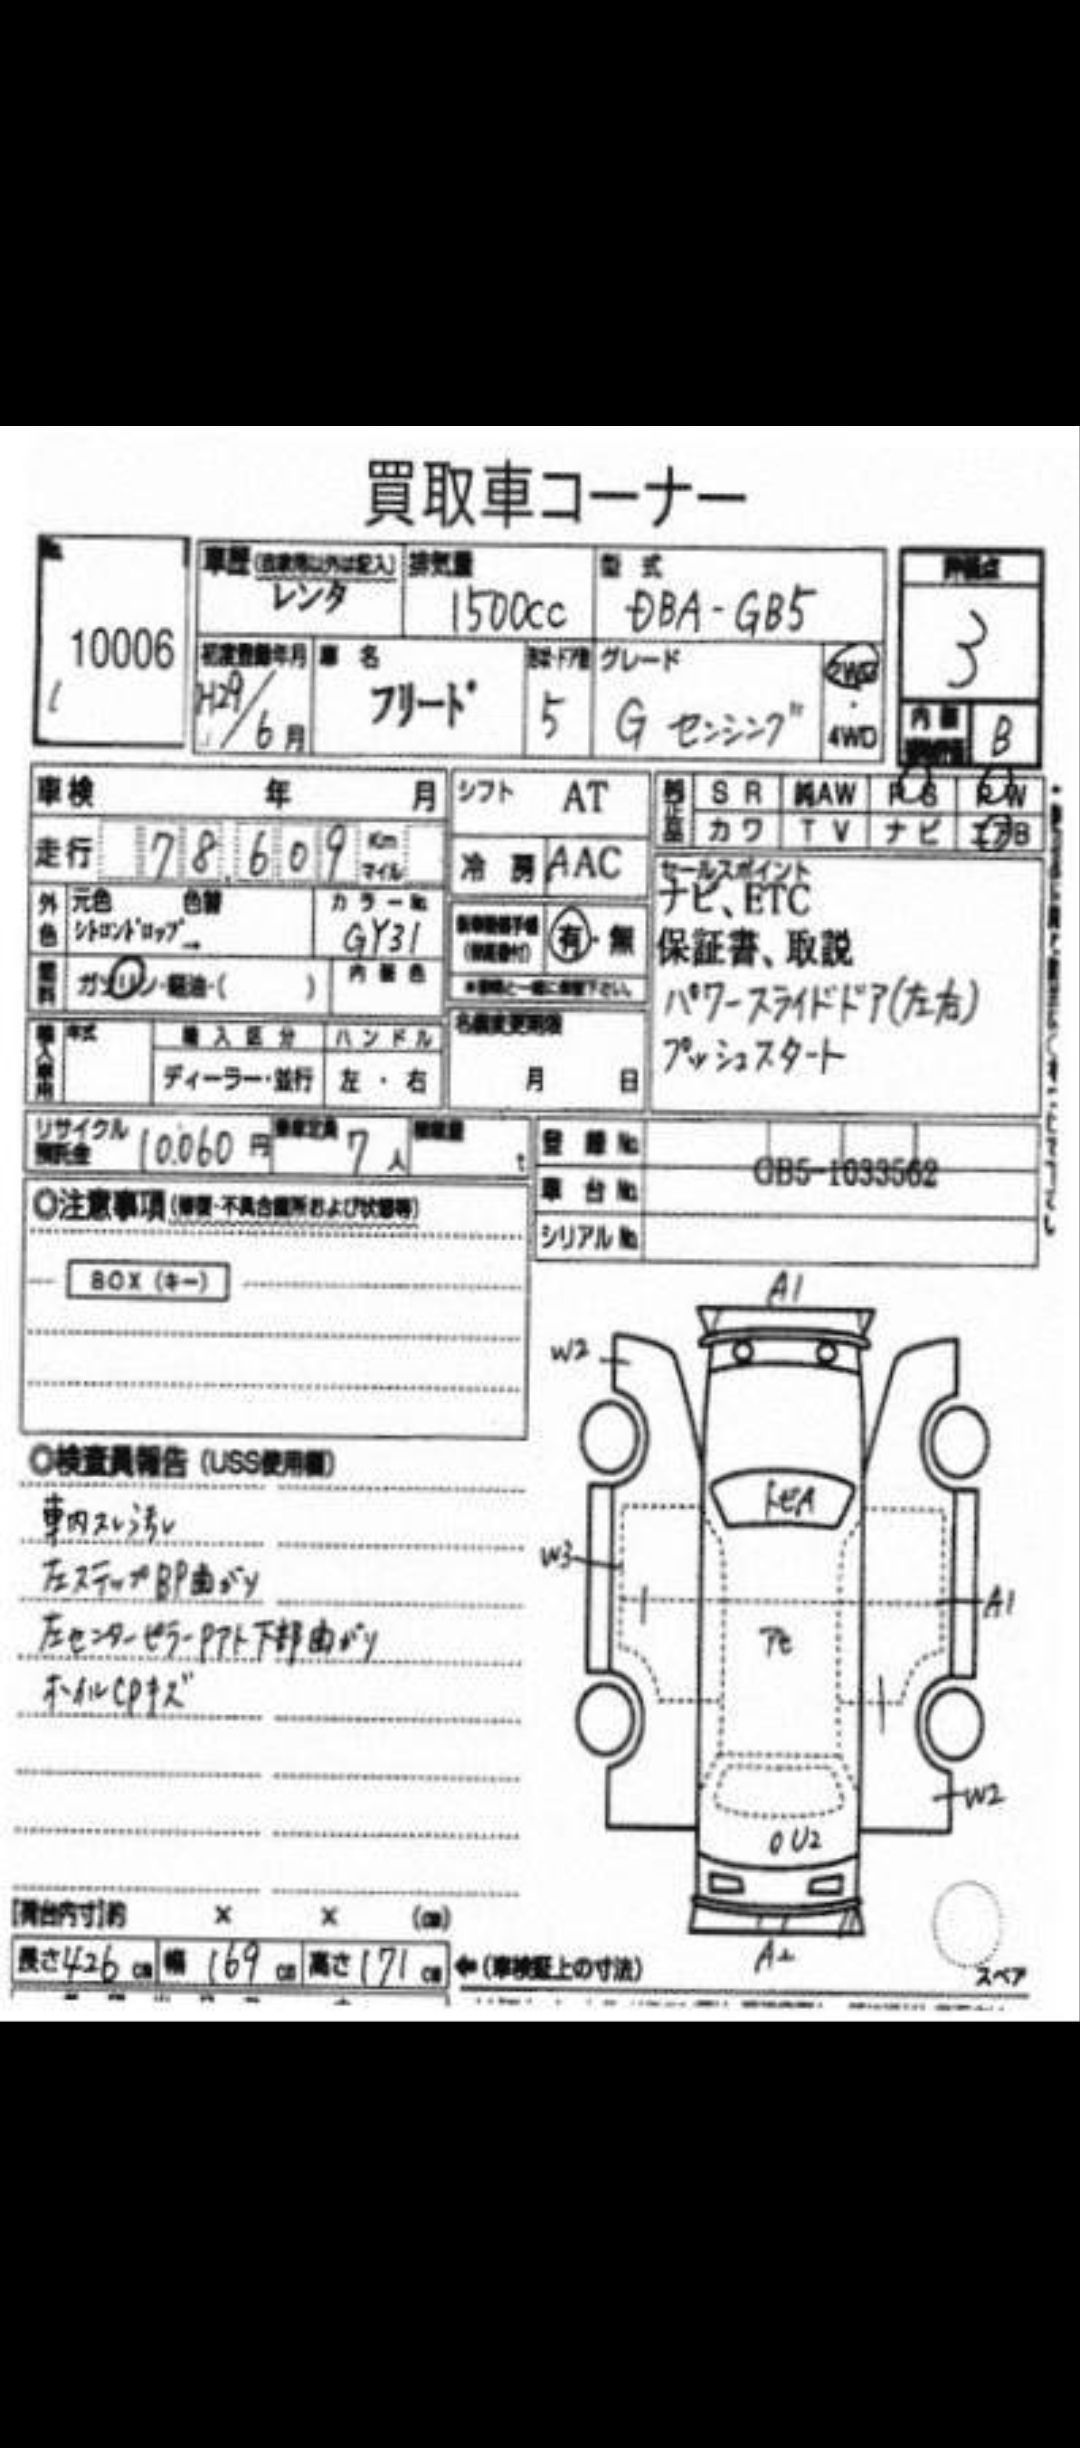 買取車コーナー
No.
10006
車歴(自家用以外は記入)
レンタ
排気量
1500cc
型式
DBA-GB5
評価点
3
初度登録年月
H29/6月
車名
フリード
形状・ドア数
5
グレード
G センシング
2WD
・
4WD
内装
B
車検 年 月
シフト AT
SR 純AW PS PW
カワ TV ナビ エアB
走行 78,609 Km
マイル
冷房 AAC
外色
元色 色替
シトロンドロップ →
カラーNo.
GY31
有・無
セールスポイント
ナビ、ETC
保証書、取説
パワースライドドア(左右)
プッシュスタート
燃料
ガソリン・軽油・( )
内装色
輸入車用
年式
輸入区分
ハンドル
ディーラー・並行
左・右
名義変更期限
月 日
リサイクル
預託金
10.060円
乗車定員
7人
積載量
t
登録No.
車台No.
GB5-1033562
シリアルNo.
◎注意事項(修復・不具合箇所および状態等)
BOX(キー)
◎検査員報告(USS使用欄)
車内スレ汚レ
左ステップBP曲がり
左センターピラーPアト下部曲がり
ホイルCPキズ
A1
W2
トビA
W3
A1
アセ
W2
U2
スペア
[荷台内寸]約 × × (cm)
長さ426cm 幅169cm 高さ171cm
←(車検証上の寸法)